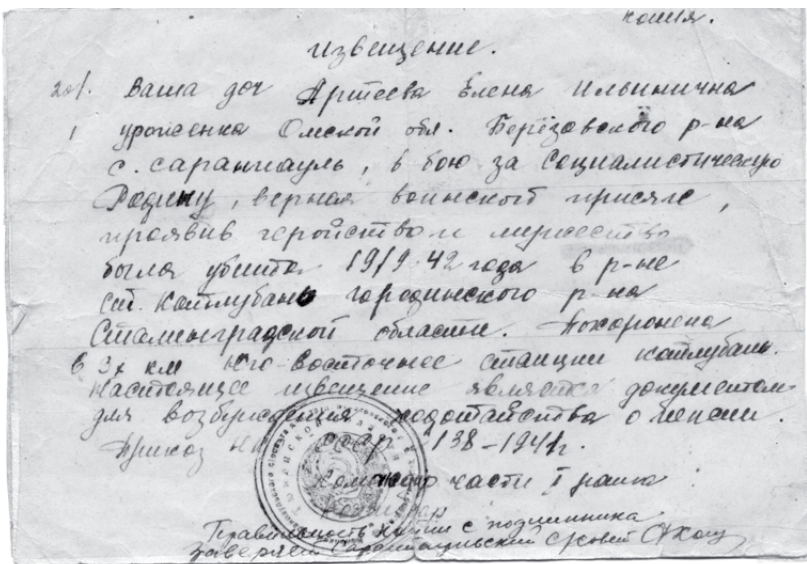 копия.
Извещение.
Ваша доч Артеева Елена Ильинична
уроженка Омской обл. Берёзовского р-на
с. Саранпауль, в бою за социалистическую
Родину, верная воинской присяге,
проявив геройством мужество
была убита 19/9-42 года в р-не
ст. Котлубань городинского р-на
Сталинградской области. Похоронена
в 3х км юго-восточнее станции Котлубань.
Настоящее извещение является документом
для возбуждения ходотайства о пенсии.
Приказ НК СССР 138-1941г.
Командир части I ранга
Правильность копии с подлинника
заверяет Саранпаульский с/совет